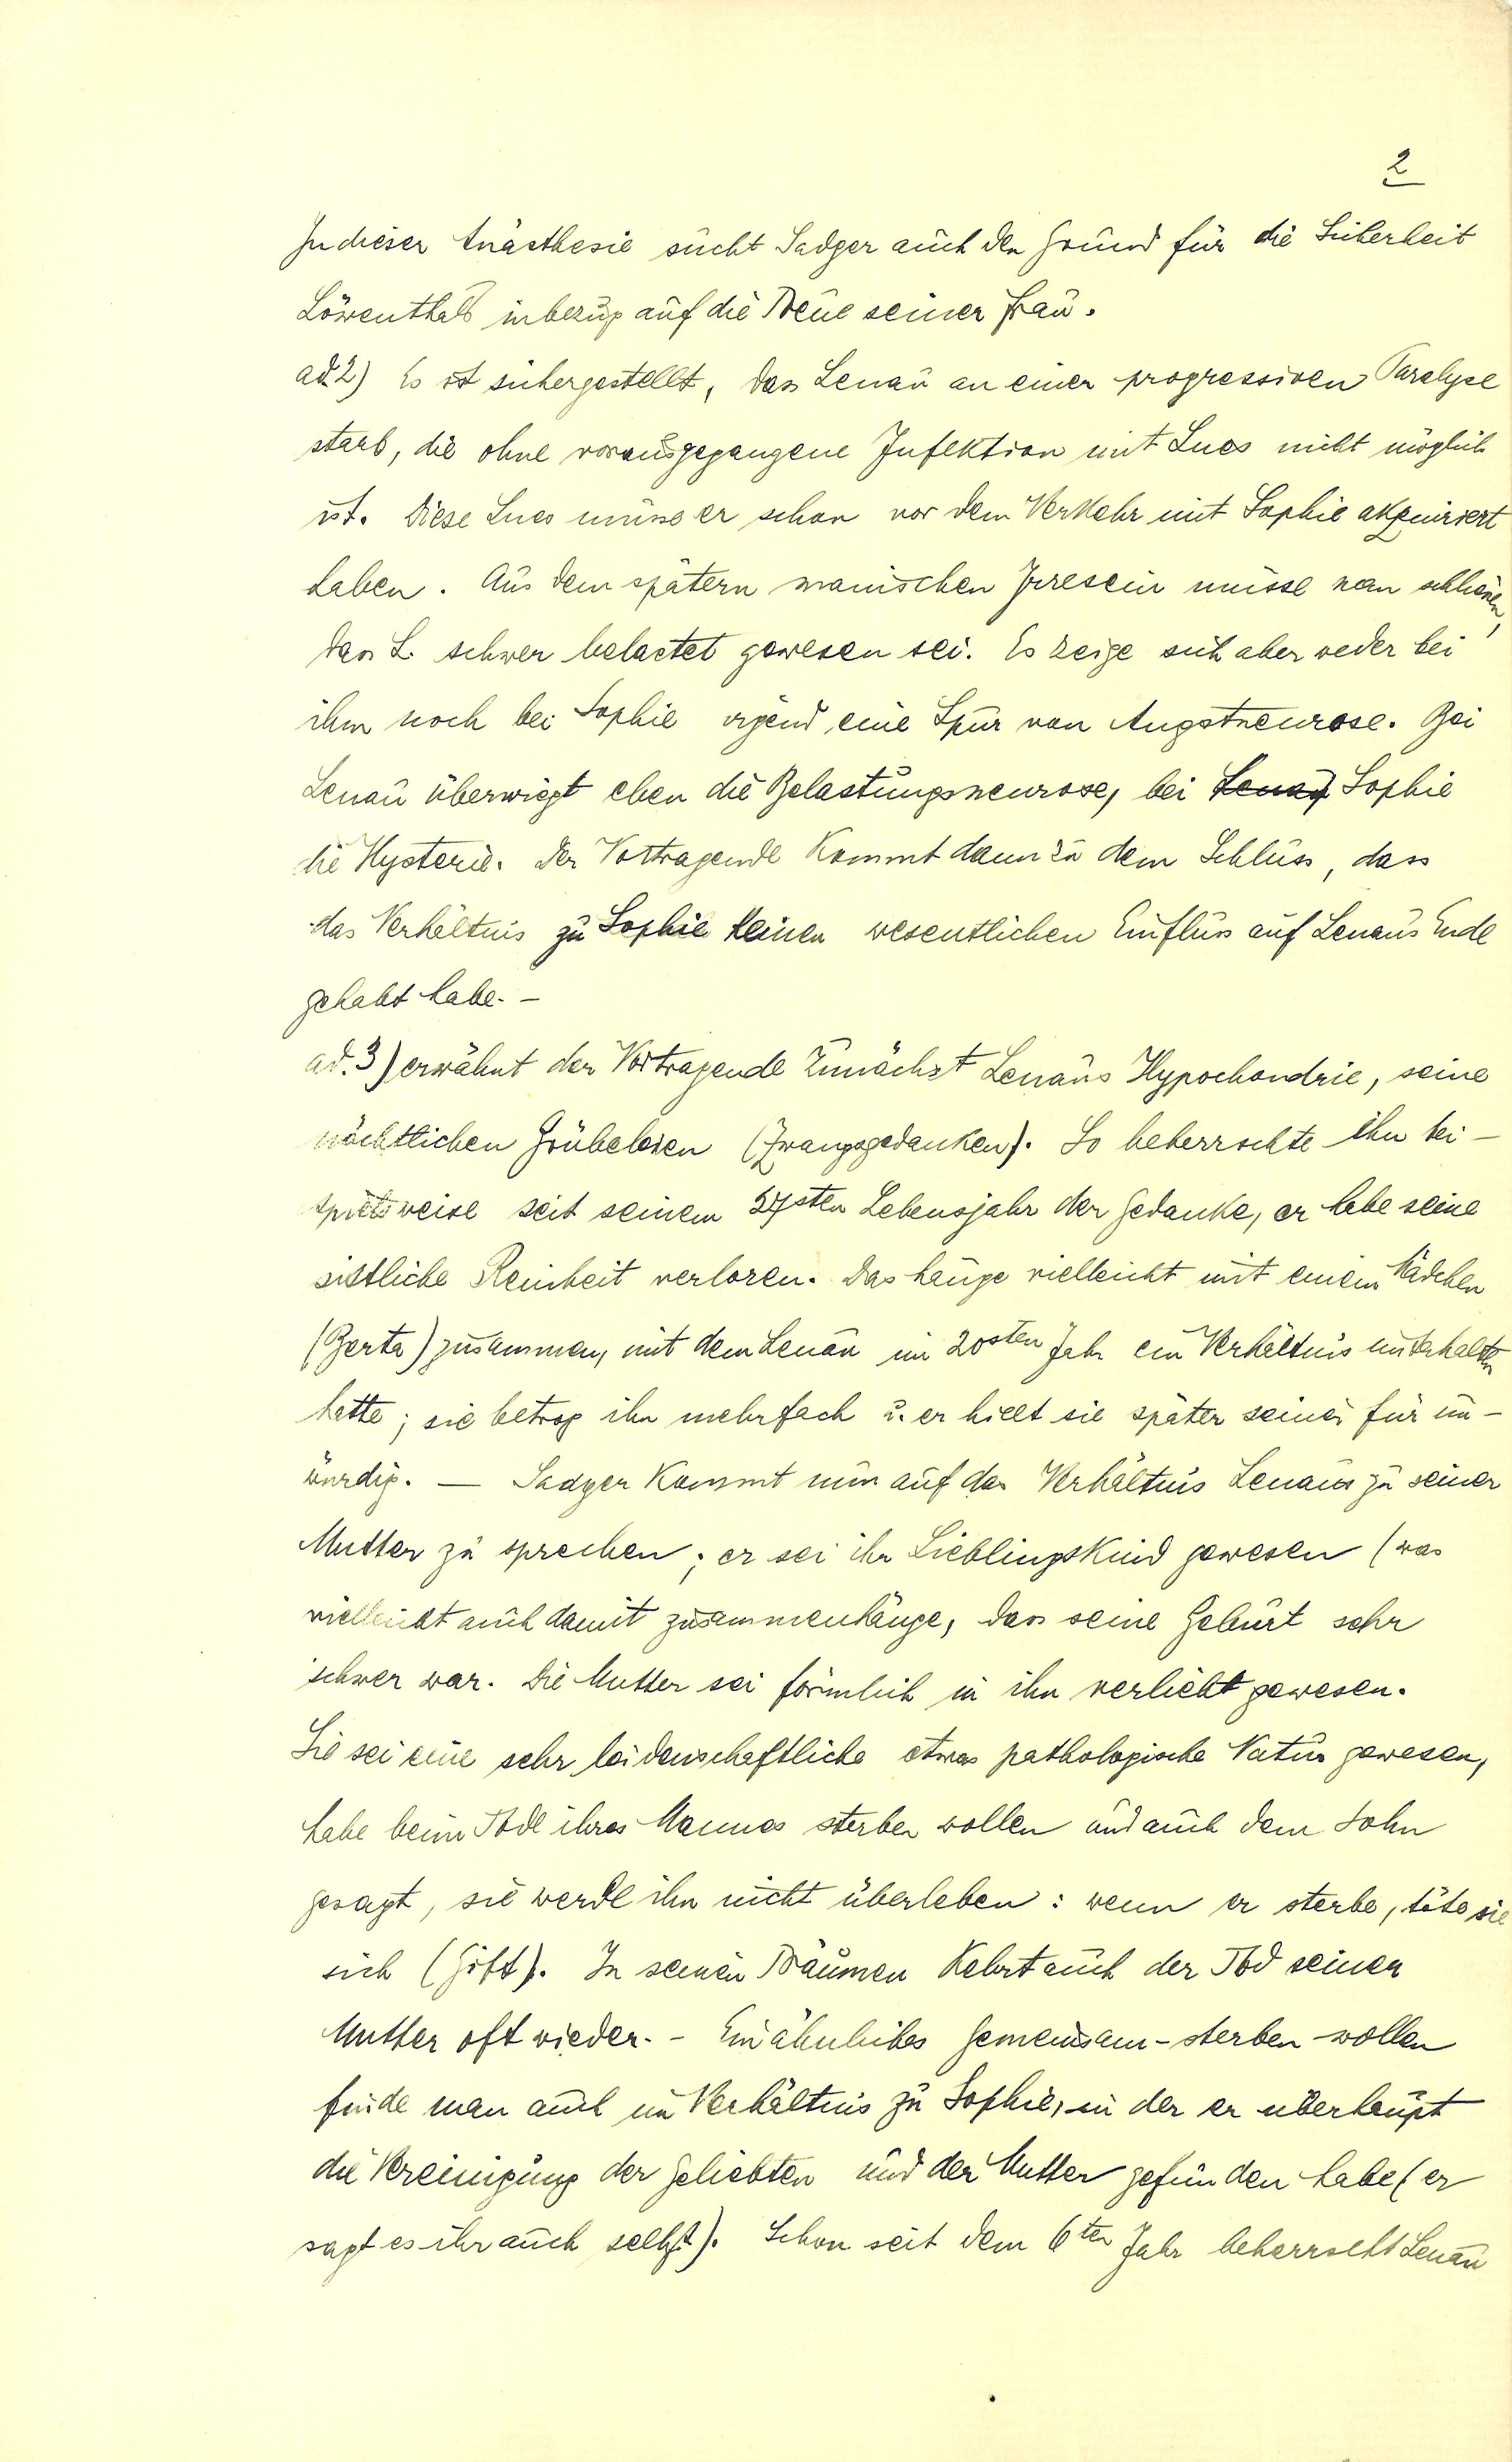 2
In dieser Anästhesie sucht Sadger auch den Grund für die Sicherheit
Löwenthals inbezug auf die Treue seiner Frau.
ad 2) Es ist sichergestellt, dass Lenau an einer progressiven Paralyse
starb, die ohne vorausgegangene Infektion mit Lues nicht möglich
ist. Diese Lues müsse er schon vor dem Verkehr mit Sophie akquiriert
haben. Aus dem spätern manischen Irresein müsse man schliessen,
dass L. schwer belastet gewesen sei. Es zeige sich aber weder bei
ihm noch bei Sophie irgend eine Spur von Angstneurose. Bei
Lenau überwiegt eben die Belastungsneurose, bei Lenau Sophie
die Hysterie. Der Vortragende kommt dann zu dem Schluss, dass
das Verhältnis zu Sophie keinen wesentlichen Einfluss auf Lenaus Ende
gehabt habe. –
ad. 3) erwähnt der Vortragende zunächst Lenaus Hypochondrie, seine
nächtlichen Grübeleien (Zwangsgedanken). So beherrschte ihn bei-
spielsweise seit seinem 27sten Lebensjahr der Gedanke, er habe seine
sittliche Reinheit verloren. Das hänge vielleicht mit einem Mädchen
(Berta) zusammen, mit dem Lenau im 20sten Jahr ein Verhältnis unterhalten
hatte; sie betrog ihn mehrfach u. er hielt sie später seiner für un-
würdig. — Sadger kommt nun auf das Verhältnis Lenaus zu seiner
Mutter zu sprechen; er sei ihr Lieblingskind gewesen (was
vielleicht auch damit zusammenhänge, dass seine Geburt sehr
schwer war. Die Mutter sei förmlich in ihn verliebt gewesen.
Sie sei eine sehr leidenschaftliche etwas pathologische Natur gewesen,
habe beim Tode ihres Mannes sterben wollen und auch dem Sohn
gesagt, sie werde ihn nicht überleben: wenn er sterbe, töte sie
sich (Gift). In seinen Träumen kehrt auch der Tod seiner
Mutter oft wieder. – Ein ähnliches Gemeinsam-sterben-wollen
finde man auch im Verhältnis zu Sophie, in der er überhaupt
die Vereinigung der Geliebten und der Mutter gefunden habe (er
sagt es ihr auch selbst). Schon seit dem 6ten Jahr beherrscht Lenau